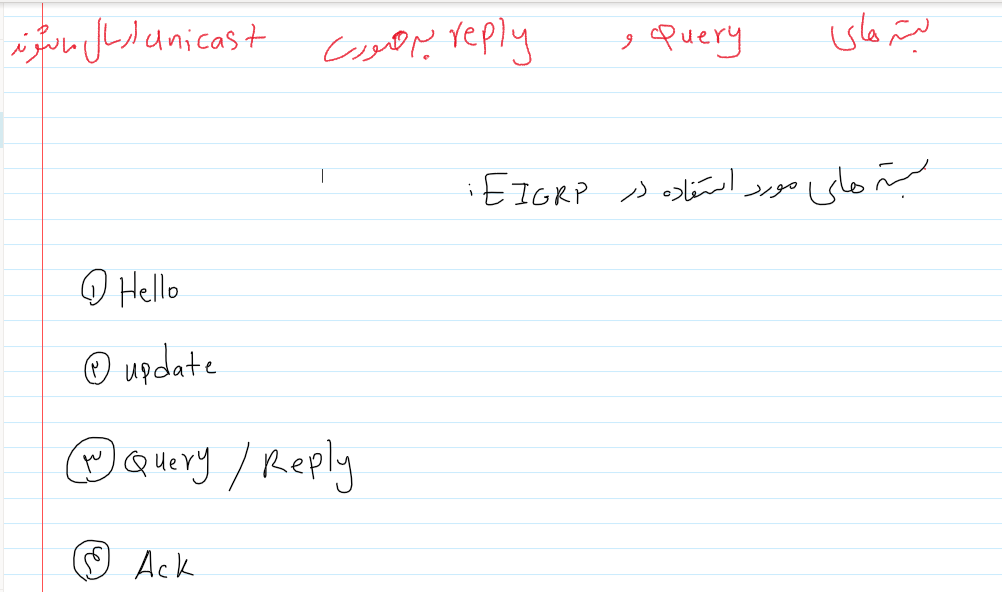 بسته های Query و reply به صورت unicast ارسال میشوند
بسته های مورد استفاده در EIGRP :
① Hello
② update
③ Query / Reply
④ Ack